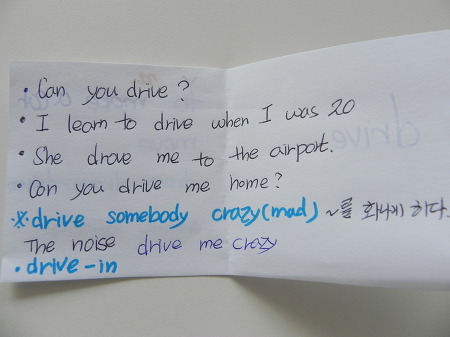 • Can you drive?
• I learn to drive when I was 20
• She drove me to the airport.
• Can you drive me home?
※ drive somebody crazy(mad) ~를 화나게 하다.
The noise drive me crazy
• drive-in
drive